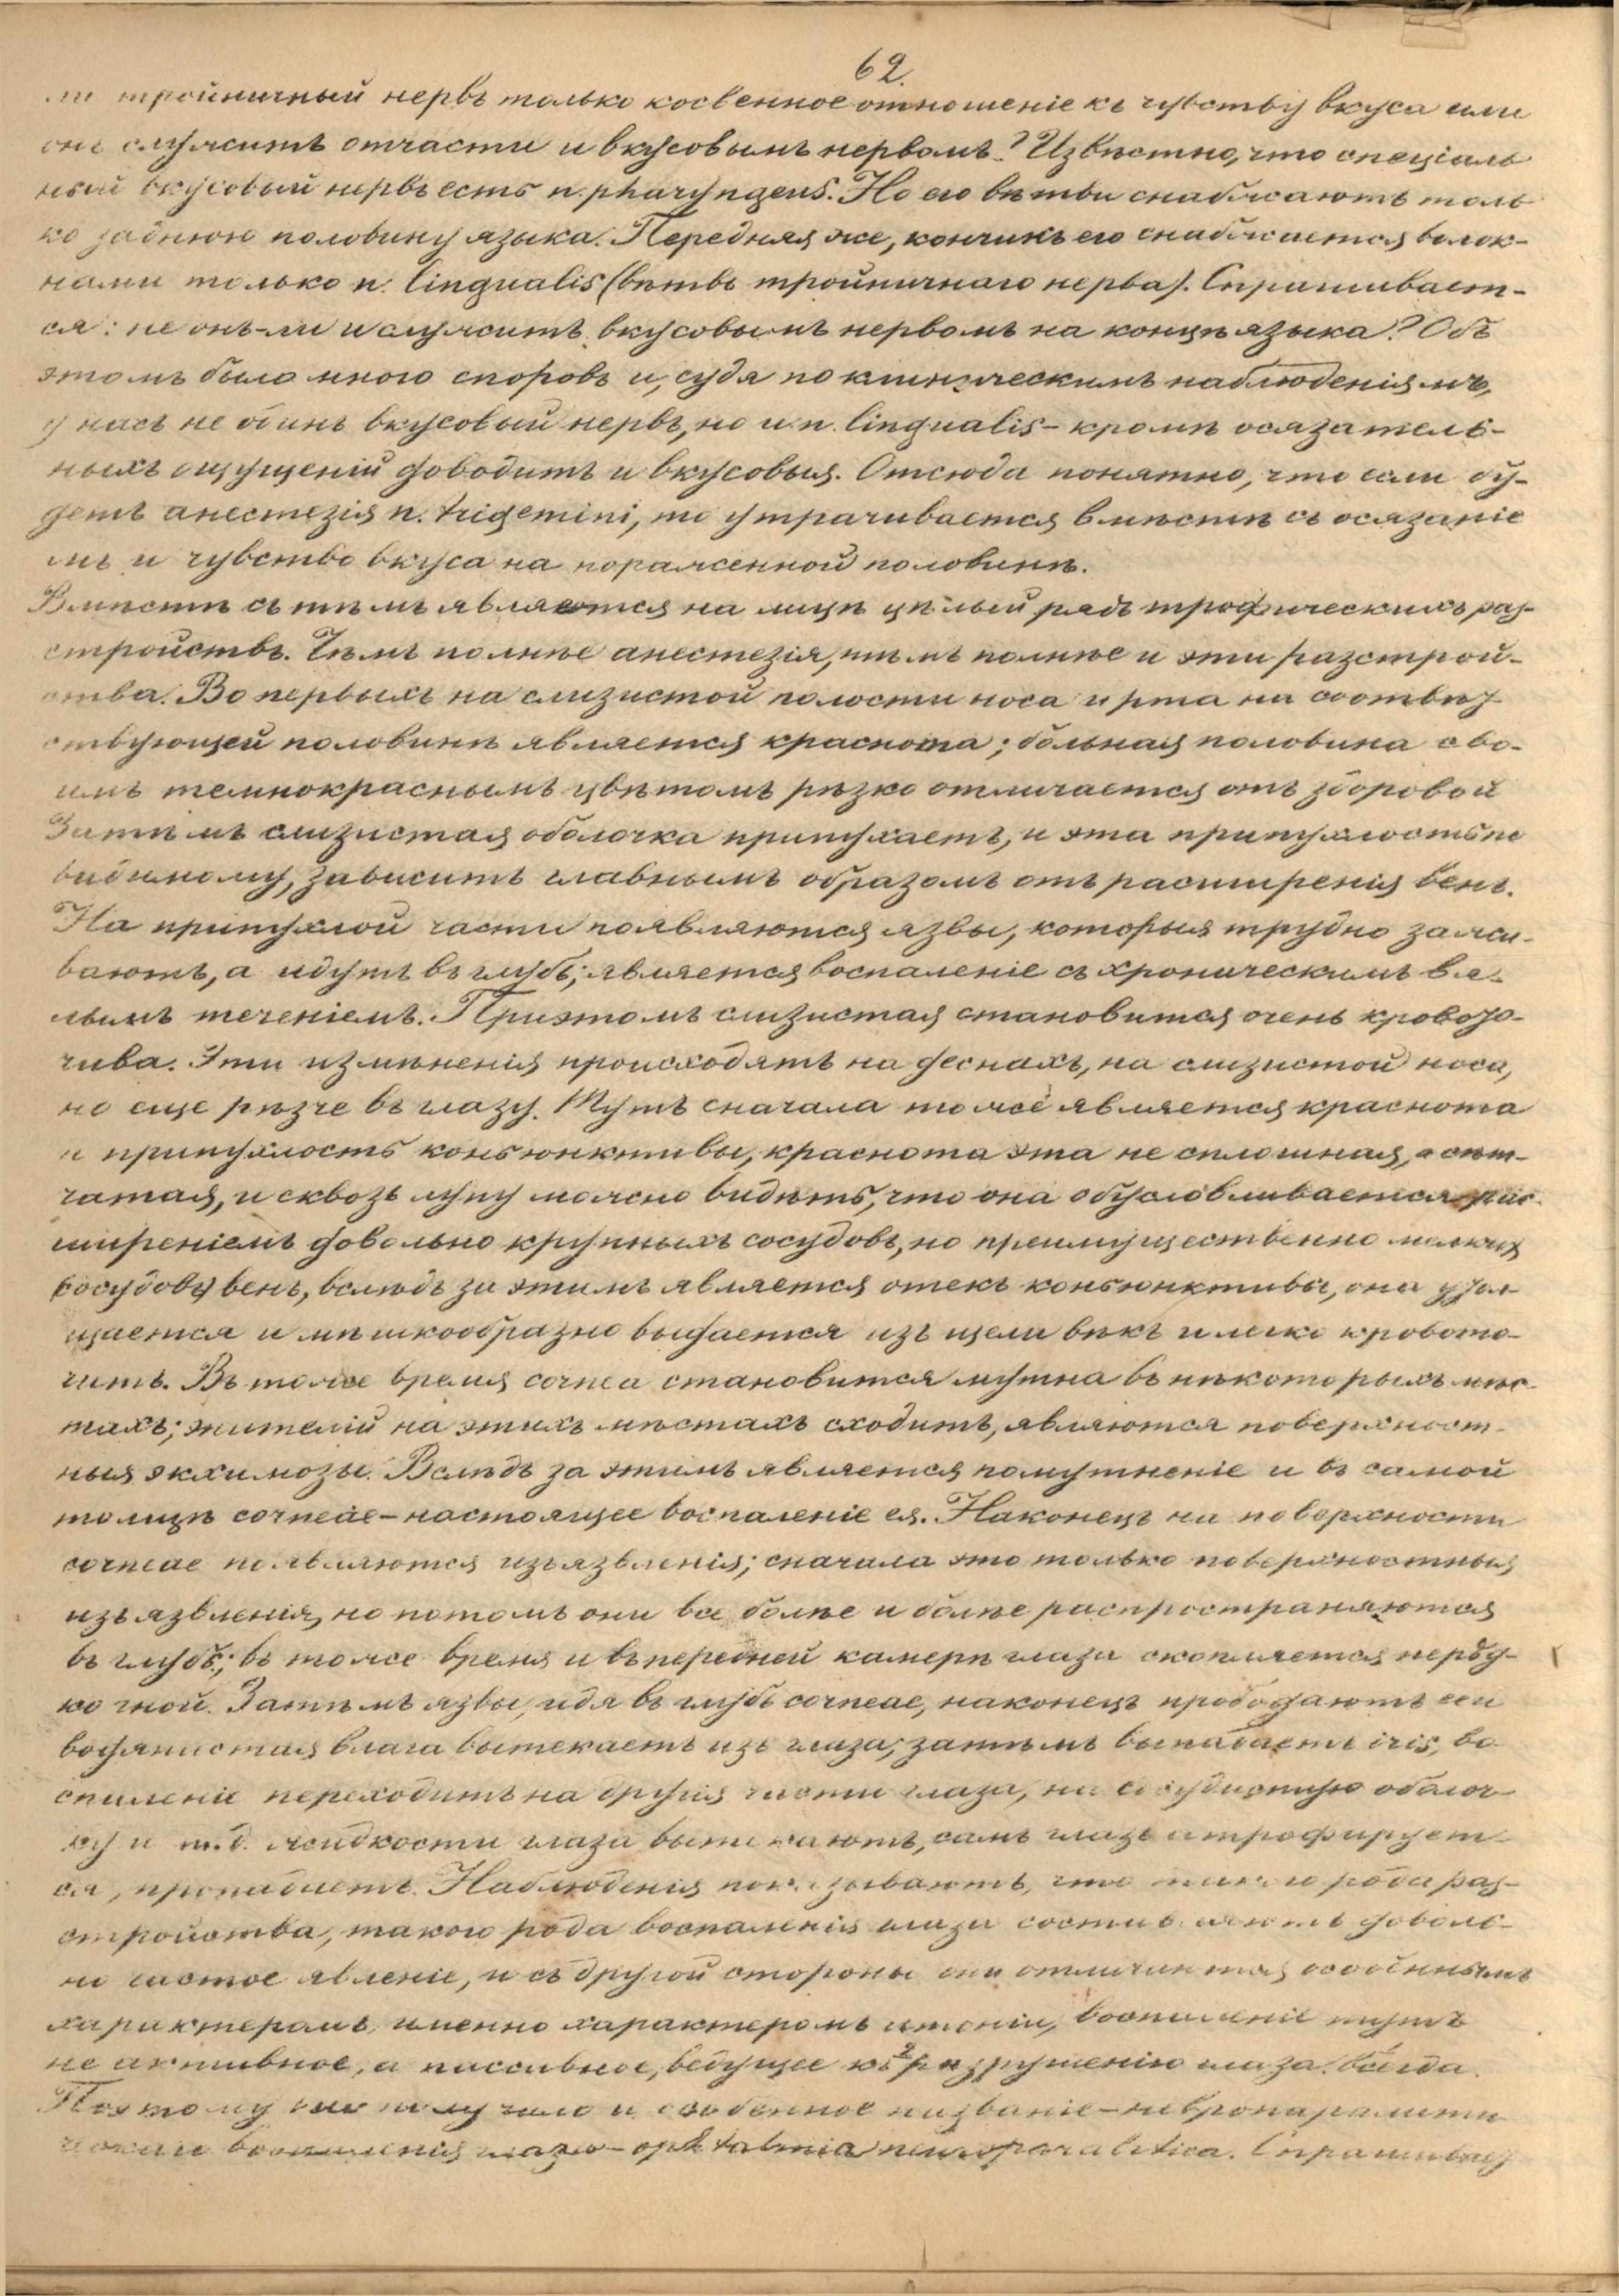 62.
ли тройничный нервъ только косвенное отношеніе къ чувству вкуса или
онъ служитъ отчасти и вкусовымъ нервомъ? Извѣстно, что спеціаль
ный вкусовый нервъ есть n. pharyngeus. Но его вѣтви снабжаютъ толь
ко заднюю половину языка. Передняя же, кончикъ его снабжается волок-
нами только n. lingualis (вѣтвь тройничнаго нерва). Спрашивает-
ся: не онъ-ли и служитъ вкусовымъ нервомъ на концѣ языка? Объ
этомъ было много споровъ и, судя по клиническимъ наблюденіямъ,
у насъ не одинъ вкусовый нервъ, но и n. lingualis – кромѣ осязатель-
ныхъ ощущеній доводитъ и вкусовыя. Отсюда понятно, что если бу-
детъ анестезія n. trigemini, то утрачивается вмѣстѣ съ осязаніе
мъ и чувство вкуса на пораженной половинѣ.
Вмѣстѣ съ тѣмъ являются на лицѣ цѣлый рядъ трофическихъ раз-
стройствъ. Чѣмъ полнѣе анестезія, тѣмъ полнѣе и эти разстрой-
ства. Во первыхъ на слизистой полости носа и рта на соотвѣт
ствующей половинѣ является краснота; больная половина сво-
имъ темнокраснымъ цвѣтомъ рѣзко отличается отъ здоровой
Затѣмъ слизистая оболочка припухаетъ, и эта припухлость по
видимому, зависитъ главнымъ образомъ отъ расширенія венъ.
На припухлой части появляются язвы, которыя трудно зажи-
ваютъ, а идутъ въ глубь; является воспаленіе съ хроническимъ вя-
лымъ теченіемъ. При этомъ слизистая становится очень кровото-
чива. Эти измѣненія происходятъ на деснахъ, на слизистой носа,
но еще рѣзче въ глазу. Тутъ сначала тоже является краснота
и припухлость конъюнктивы, краснота эта не сплошная, а сѣт-
чатая, и сквозь лупу можно видѣть, что она обусловливается рас-
ширеніемъ довольно крупныхъ сосудовъ, но преимущественно мелкихъ
сосудовъ венъ, вслѣдъ за этимъ является отекъ конъюнктивы, она утол
щается и мѣшкообразно выдается изъ щели вѣкъ и легко кровото-
читъ. Въ тоже время cornea становится мутна въ нѣкоторыхъ мѣс-
тахъ; эпителій на этихъ мѣстахъ сходитъ, являются поверхност-
ныя экхимозы. Вслѣдъ за этимъ является помутнѣніе и въ самой
толщѣ corneae – настоящее воспаленіе ея. Наконецъ на поверхности
corneae появляются изъязвленія; сначала это только поверхностныя
изъязвленія, но потомъ они все болѣе и болѣе распространяются
въ глубь; въ тоже время и въ передней камерѣ глаза скопляется нерѣд-
ко гной. Затѣмъ язвы, идя въ глубь corneae, наконецъ прободаютъ ея
водянистая влага вытекаетъ изъ глаза; затѣмъ выпадаетъ iris, во
спаленіе переходитъ на другія части глаза, на сосудистую оболоч
ку и т. д. жидкости глаза вытекаютъ, самъ глазъ атрофирует-
ся, пропадаетъ. Наблюденія показываютъ, что такого рода раз-
стройства, такого рода воспаленія глаза составляютъ доволь-
но частое явленіе, и съ другой стороны они отличаются особеннымъ
характеромъ, именно характеромъ атоніи, воспаленіе идетъ
не активное, а пассивное, ведущее къ разрушенію глаза всегда.
Поэтому оно получило и особенное названіе – невропаралити
ческаго воспаленія глаза – ophtalmia neuroparalitica. Спрашивает